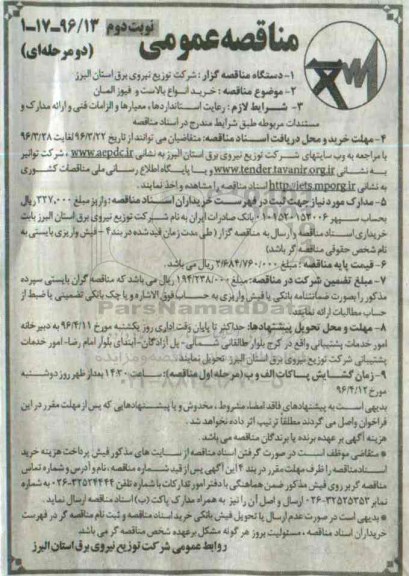 ۱-۱۷-۹۶/۱۳ نوبت دوم
(دو مرحله‌ای)
مناقصه عمومی
۱- دستگاه مناقصه گزار: شرکت توزیع نیروی برق استان البرز
۲- موضوع مناقصه: خرید انواع بالاست و فیوز المان
۳- شرایط لازم: رعایت استانداردها، معیارها و الزامات فنی و ارائه مدارک و
مستندات مربوطه طبق شرایط مندرج در اسناد مناقصه
۴- مهلت خرید و محل دریافت اسناد مناقصه: متقاضیان می توانند از تاریخ ۹۶/۳/۲۲ لغایت ۹۶/۳/۲۸
با مراجعه به وب سایتهای شرکت توزیع نیروی برق استان البرز به نشانی www.aepdc.ir ، شرکت توانیر
به نشانی www.tender.tavanir.org.ir و یا پایگاه اطلاع رسانی ملی مناقصات کشوری
به نشانی http://iets.mporg.ir اسناد مناقصه را مشاهده و اخذ نمایند.
۵- مدارک مورد نیاز جهت ثبت در فهرست خریداران اسناد مناقصه: واریز مبلغ ۳۲۷,۰۰۰ ریال
بحساب سپهر ۰۱۰۱۵۲۰۱۵۳۰۰۶ بانک صادرات ایران به نام شرکت توزیع نیروی برق استان البرز بابت
خریداری اسناد مناقصه و ارسال به مناقصه گزار (طی مدت زمان قید شده در بند ۴- فیش واریزی بایستی به
نام شخص حقوقی مناقصه گر باشد)
۶- قیمت پایه مناقصه: مبلغ ۳/۶۸۴/۷۶۰/۰۰۰ ریال می باشد.
۷- مبلغ تضمین شرکت در مناقصه: مبلغ ۱۹۴/۲۳۸/۰۰۰ ریال می باشد که مناقصه گران بایستی سپرده
مذکور را بصورت ضمانتنامه بانکی یا فیش واریزی به حساب فوق الاشاره و یا چک بانکی تضمینی یا ضبط از
حساب مطالبات ارائه نمایند.
۸- مهلت و محل تحویل پیشنهادها: حداکثر تا پایان وقت اداری روز یکشنبه مورخ ۹۶/۴/۱۱ به دبیرخانه
امور خدمات پشتیبانی واقع در کرج بلوار طالقانی شمالی- پل آزادگان- ابتدای بلوار امام رضا- امور خدمات
پشتیبانی شرکت توزیع نیروی برق استان البرز تحویل نمایند.
۹- زمان گشایش پاکات الف و ب (مرحله اول مناقصه): ساعت ۱۴:۳۰ بعداز ظهر روز دوشنبه
مورخ ۹۶/۴/۱۲
بدیهی است به پیشنهادهای فاقد امضاء، مشروط، مخدوش و یا پیشنهادهایی که پس از مهلت مقرر در این
فراخوان واصل می گردند مطلقاً ترتیب اثر داده نخواهد شد.
هزینه آگهی بر عهده برنده یا برندگان مناقصه می باشد.
* متقاضی موظف است در صورت گرفتن اسناد مناقصه از سایت های مذکور فیش پرداخت هزینه خرید
اسناد مناقصه را ظرف مهلت مقرر در بند ۴ این آگهی پس از قید شماره مناقصه، نام و آدرس و شماره تماس
مناقصه گر بر روی فیش مذکور ضمن هماهنگی با دفتر امور تدارکات با شماره تلفن ۳۲۵۲۴۴۴۴-۰۲۶ به شماره
نمابر ۳۲۵۲۵۳۵۳-۰۲۶ ارسال و اصل آن را نیز به همراه مدارک پاکت (ب) اسناد مناقصه ارسال نماید.
* بدیهی است در صورت عدم ارسال یا تحویل فیش بانکی خرید اسناد مناقصه و ثبت نام مناقصه گر در فهرست
خریداران اسناد مناقصه، مسئولیت بروز هر گونه مشکل برعهده شخص مناقصه گر می باشد.
روابط عمومی شرکت توزیع نیروی برق استان البرز